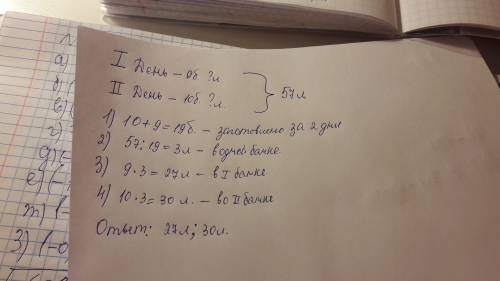 I День – 9б. ?л.
II День – 10б. ?л.
57л
1) 10+9=19б. – заготовлено за 2 дня
2) 57:19=3л – в одной банке
3) 9·3=27л – в I банке
4) 10·3=30л. – во II банке
Ответ: 27л; 30л.
а)
б)
в)
г)
д)
е) (-
ж) (-
з) (-0